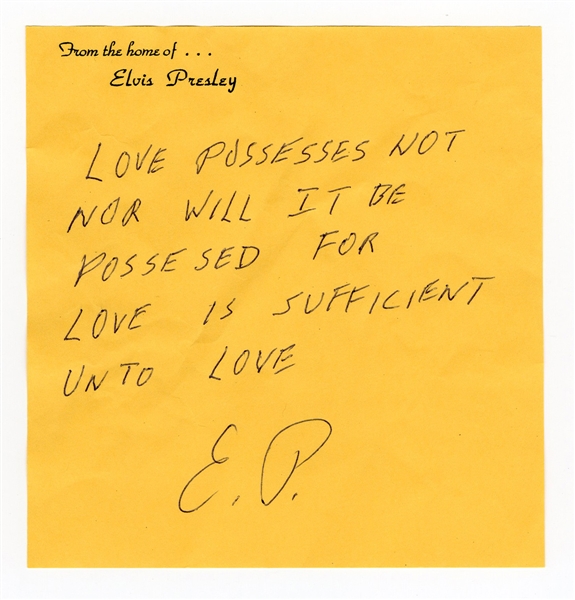 From the home of . . .
Elvis Presley
LOVE POSSESSES NOT
NOR WILL IT BE
POSSESED FOR
LOVE IS SUFFICIENT
UNTO LOVE
E.P.